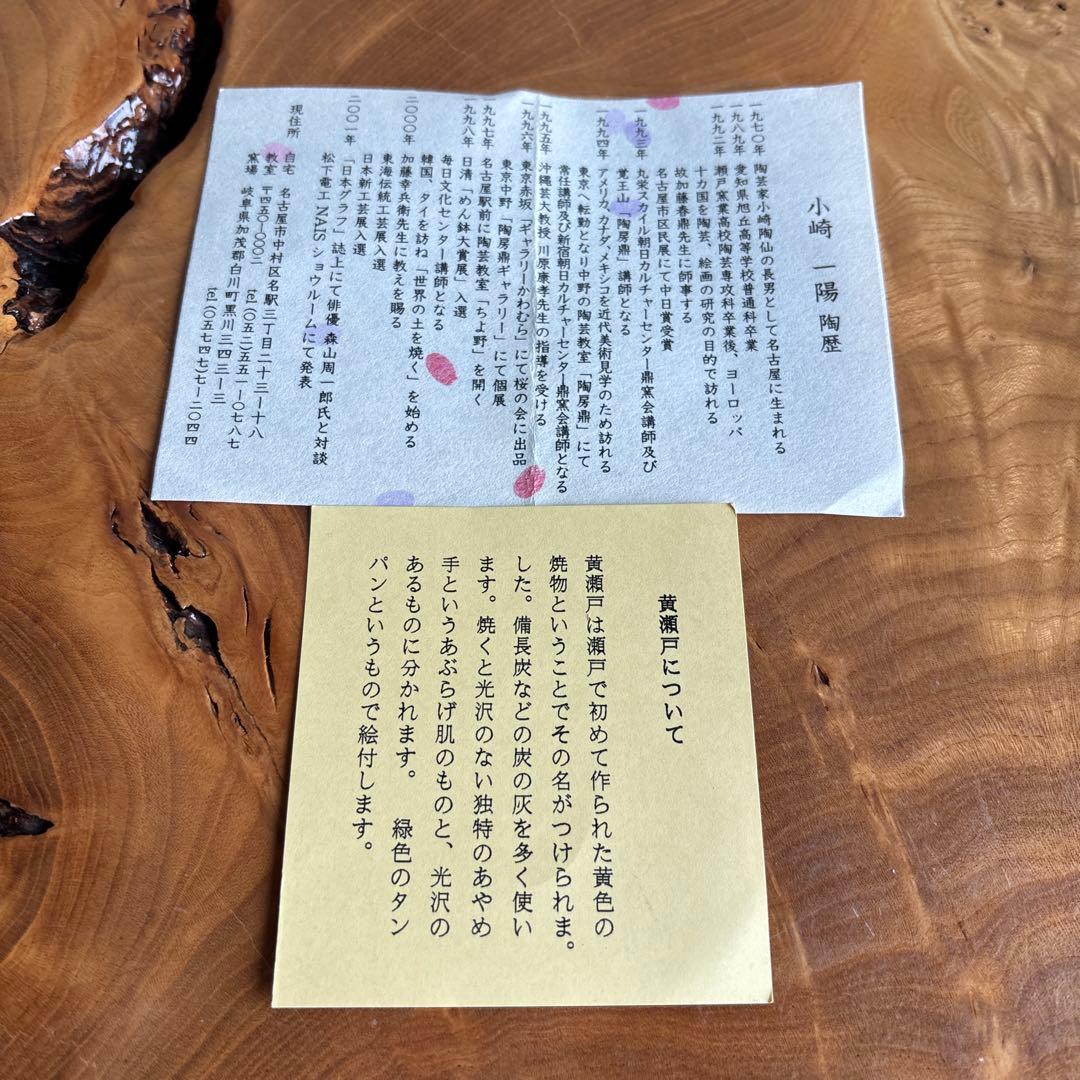 小崎 一陽 陶歴
一九七〇年 陶芸家小崎陶仙の長男として名古屋に生まれる
一九八九年 愛知県旭丘高等学校普通科卒業
一九九二年 瀬戸窯業高校陶芸専攻科卒業後、ヨーロッパ
十カ国を陶芸、絵画の研究の目的で訪れる
故加藤春鼎先生に師事する
名古屋市区民展にて中日賞受賞
一九九三年 丸栄スカイル朝日カルチャーセンター鼎窯会講師及び
覚王山「陶房鼎」講師となる
一九九四年 アメリカ、カナダ、メキシコを近代美術見学のため訪れる
東京へ転勤となり中野の陶芸教室「陶房鼎」にて
常任講師及び新宿朝日カルチャーセンター鼎窯会講師となる
一九九五年 沖縄芸大教授、川原康孝先生の指導を受ける
一九九六年 東京赤坂「ギャラリーかわむら」にて桜の会に出品
東京中野「陶房鼎ギャラリー」にて個展
一九九七年 名古屋駅前に陶芸教室「ちよ野」を開く
一九九八年 日清「めん鉢大賞展」入選
毎日文化センター講師となる
韓国、タイを訪ね「世界の土を焼く」を始める
二〇〇〇年 加藤幸兵衛先生に教えを賜る
東海伝統工芸展入選
日本新工芸展入選
二〇〇一年 「日本グラフ」誌上にて俳優 森山周一郎氏と対談
松下電工 NAIS ショウルームにて発表
現住所 自宅 名古屋市中村区名駅三丁目二十三ー十八
教室 〒四五〇ー〇〇〇二 tel 〇五二ー五五一ー〇七八七
窯場 岐阜県加茂郡白川町黒川三四三ー三
tel 〇五七四七)七ー二〇四四
黄瀬戸について
黄瀬戸は瀬戸で初めて作られた黄色の
焼物ということでその名がつけられま。
した。備長炭などの炭の灰を多く使い
ます。焼くと光沢のない独特のあやめ
手というあぶらげ肌のものと、光沢の
あるものに分かれます。 緑色のタン
パンというもので絵付します。